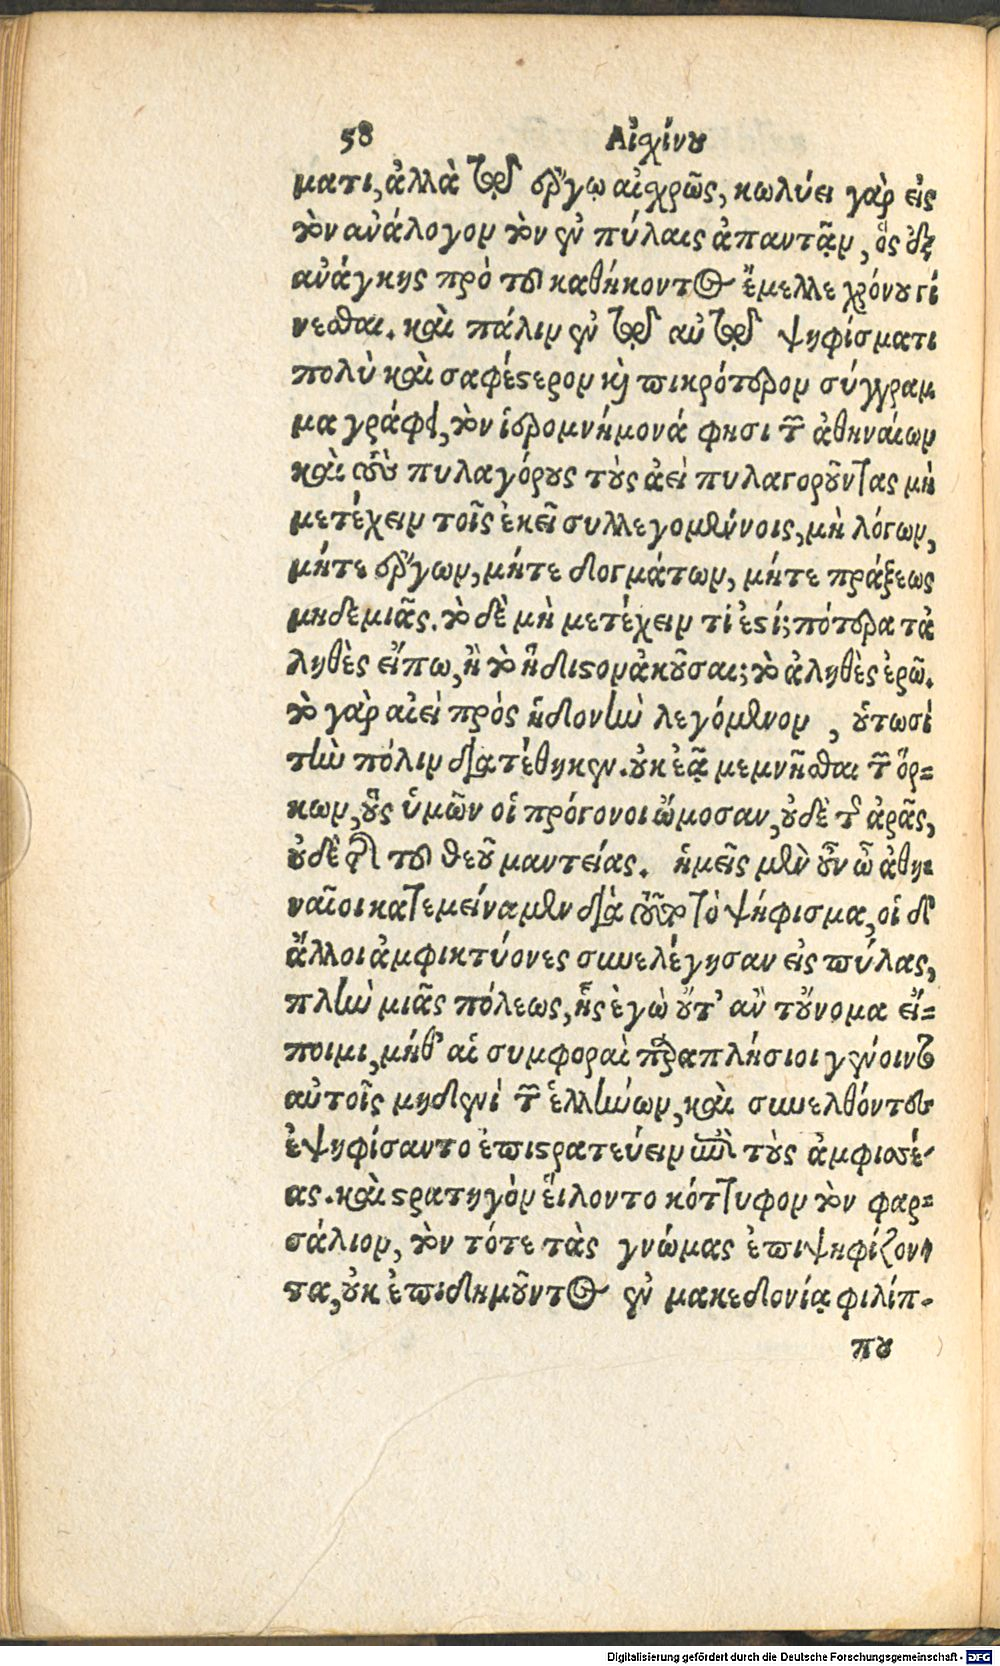 58 Αἰσχίνου
ματι, ἀλλὰ τῷ ἔργῳ αἰσχρῶς, κωλύει γὰρ εἰς
τὸν ἀνάλογον τὸν ἐν πύλαις ἀπαντᾷν, ὃς ἐξ
ἀνάγκης πρὸ τοῦ καθήκοντος ἔμελλε χρόνου γί
νεσθαι. καὶ πάλιν ἐν τῷ αὐτῷ ψηφίσματι
πολὺ καὶ σαφέστερον καὶ πικρότερον σύγγραμ
μα γράφει, τὸν ἱερομνήμονά φησι τῶν ἀθηναίων
καὶ τοὺς πυλαγόρους τοὺς ἀεὶ πυλαγοροῦντας μὴ
μετέχειν τοῖς ἐκεῖ συλλεγομένοις, μὴ λόγων,
μήτε ἔργων, μήτε δογμάτων, μήτε πράξεως
μηδεμιᾶς. τὸ δὲ μὴ μετέχειν τί ἐστί; πότερα τἀ
ληθὲς εἴπω, ἢ τὸ ἥδιστον ἀκοῦσαι; τὸ ἀληθὲς ἐρῶ.
τὸ γὰρ αἰεὶ πρὸς ἡδονὴν λεγόμενον, οὑτωσὶ
τὴν πόλιν διατέθηκεν. οὐκ ἐᾷ μεμνῆσθαι τῶν ὅρ=
κων, οὓς ὑμῶν οἱ πρόγονοι ὤμοσαν, οὐδὲ τῆς ἀρᾶς,
οὐδὲ τῆς τοῦ θεοῦ μαντείας. ἡμεῖς μὲν οὖν ὦ ἀθη=
ναῖοι κατεμείναμεν διὰ τοῦτο τὸ ψήφισμα, οἱ δ'
ἄλλοι ἀμφικτύονες συνελέγησαν εἰς πύλας,
πλὴν μιᾶς πόλεως, ἧς ἐγὼ οὔτ' ἂν τοὔνομα εἴ=
ποιμι, μήθ' αἱ συμφοραὶ παραπλήσιοι γένοιντο
αὐτοῖς μηδενὶ τῶν ἑλλήνων, καὶ συνελθόντες
ἐψηφίσαντο ἐπιστρατεύειν ἐπὶ τοὺς ἀμφισσέ-
ας. καὶ στρατηγὸν εἵλοντο κόττυφον τὸν φαρ=
σάλιον, τὸν τότε τὰς γνώμας ἐπιψηφίζον
τα, οὐκ ἐπιδημοῦντος ἐν μακεδονίᾳ φιλίπ-
που
Digitalisierung gefördert durch die Deutsche Forschungsgemeinschaft - DFG